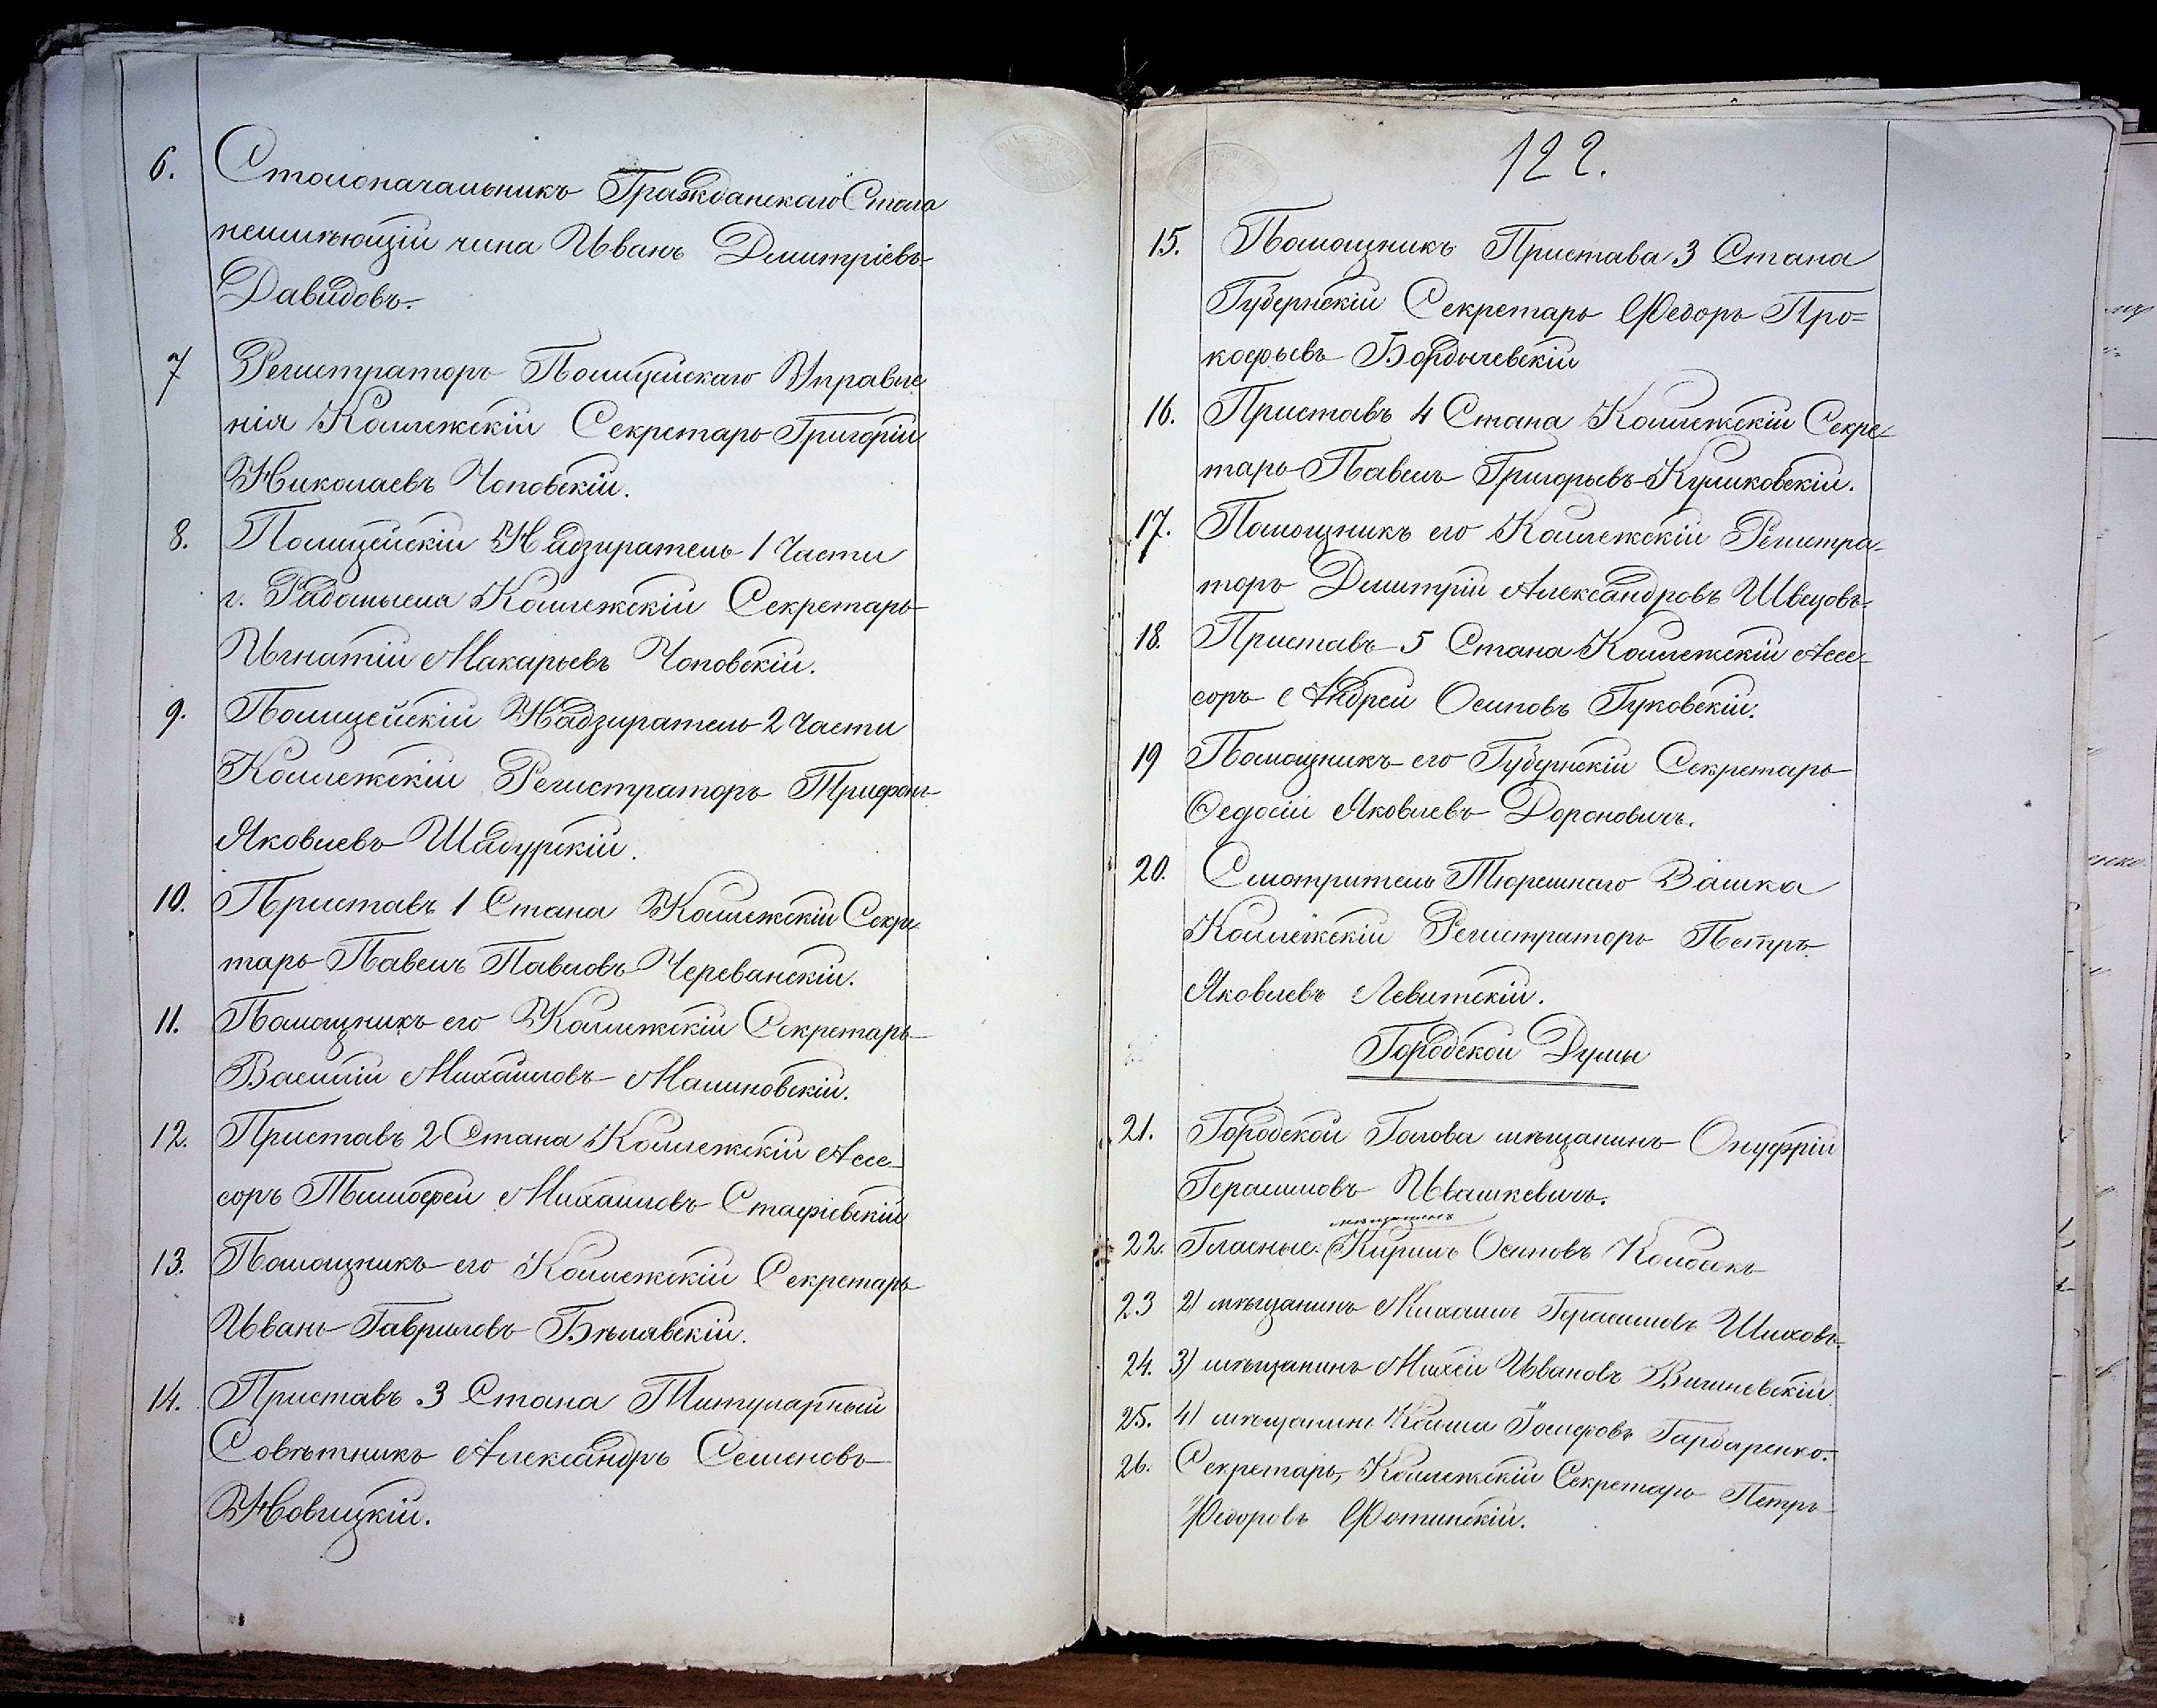 6. Столоначальникъ Гражданскаго Стола
неимѣющій чина Иванъ Дмитріевъ
Давидовъ.
7 Регистраторъ Полицейскаго Управле
нія Коллежскій Секретарь Григорій
Николаевъ Чоповскій.
8. Полицейскій Надзиратель 1 Части
г. Радомысля Коллежскій Секретарь
Игнатій Макарьевъ Чоповскій.
9. Полицейскій Надзиратель 2 Части
Коллежскій Регистраторъ Трифонъ
Яковлевъ Шадурскій.
10. Приставъ 1 Стана Коллежскій Секре
тарь Павелъ Павловъ Череванскій.
11. Помощникъ его Коллежскій Секретарь
Василій Михайловъ Малиновскій.
12. Приставъ 2 Стана Коллежскій Ассе-
соръ Тимофей Михайловъ Стафіевскій
13. Помощникъ его Коллежскій Секретарь
Иванъ Гавриловъ Бѣлявскій.
14. Приставъ 3 Стана Титулярный
Совѣтникъ Александръ Семеновъ
Новицкій.
122.
15. Помощникъ Пристава 3 Стана
Губернскій Секретарь Федоръ Про=
кофьевъ Бордычевскій
16. Приставъ 4 Стана Коллежскій Секре-
тарь Павелъ Григорьевъ Куликовскій.
17. Помощникъ его Коллежскій Регистра-
торъ Дмитрій Александровъ Швецовъ.
18. Приставъ 5 Стана Коллежскій Ассе-
соръ Андрей Осиповъ Гуковскій.
19 Помощникъ его Губернскій Секретарь
Ѳедосій Яковлевъ Дороновичъ.
20. Смотритель Тюремнаго Замка
Коллежскій Регистраторъ Петръ
Яковлевъ Левитскій.
Городской Думы
21. Городской Голова мѣщанинъ Онуфрій
Герасимовъ Ивашкевичъ.
мѣщанинъ
22. Гласные: Кирилъ Осиповъ
23 2) мѣщанинъ Михаилъ Герасимовъ Шиховъ.
24. 3) мѣщанинъ Михей Ивановъ Вишневскій
25. 4) мѣщанинъ Іосифовъ Гарбаренко.
26. Секретарь, Коллежскій Секретарь Петръ
Федоровъ Фотинскій.